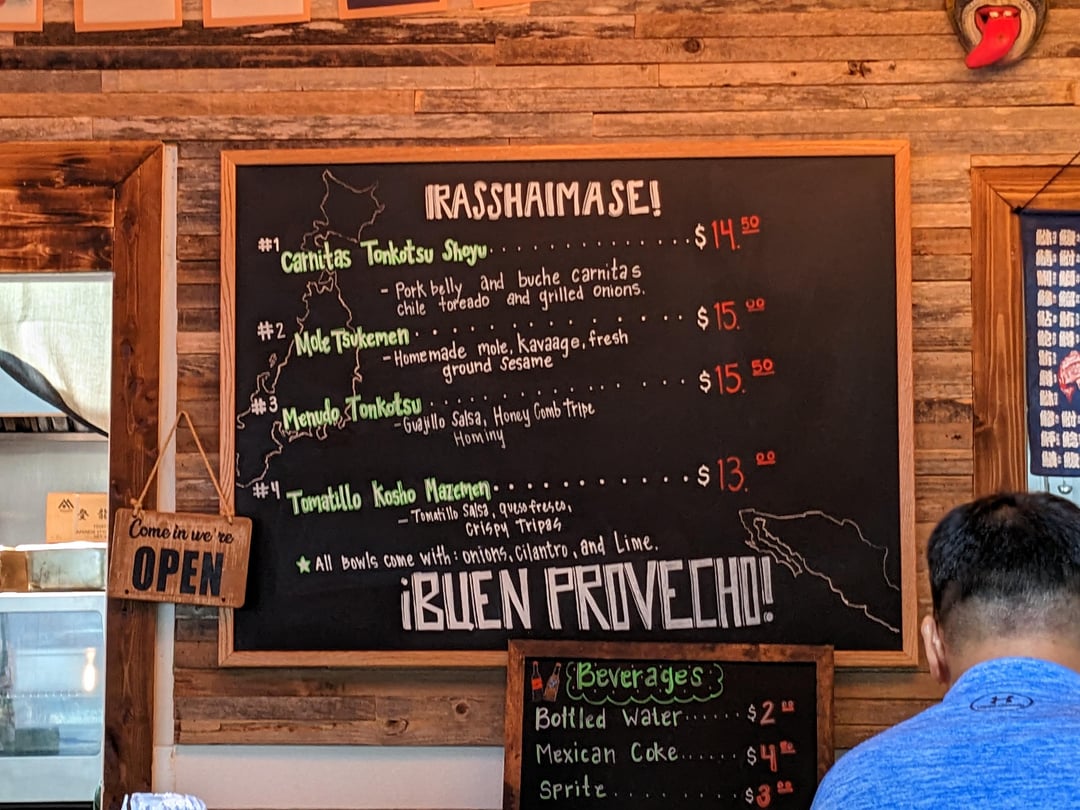 IRASSHAIMASE!
#1 Carnitas Tonkotsu Shoyu.............$14.50
- Pork belly and buche carnitas
chile toreado and grilled onions.
#2 Mole Tsukemen..............$15.00
- Homemade mole, Kavaage, fresh
ground Sesame
#3 Menudo Tonkotsu..............$15.50
- Guajillo Salsa, Honey Comb Tripe
Hominy
#4 Tomatillo Kosho Mazemen............$13.00
- Tomatillo Salsa, queso fresco,
crispy Tripas
★ All bowls come with: onions, cilantro, and Lime.
¡BUEN PROVECHO!
Come in we're
OPEN
Beverages
Bottled Water......$2
Mexican Coke......$4
Sprite..........$3